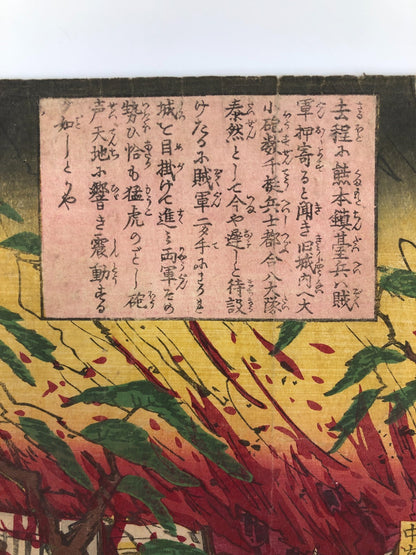 去程に熊本鎮臺兵ハ賊
軍押寄ると聞き旧城内へ大
小砲数千挺兵士都合八大隊
泰然として今や遅しと待設
けたるに賊軍二タ手にわかれ
城を目掛けて進ミ両軍たがひの
勢ひ恰も猛虎のごとし砲
声天地に響き震動する
が如しとかや